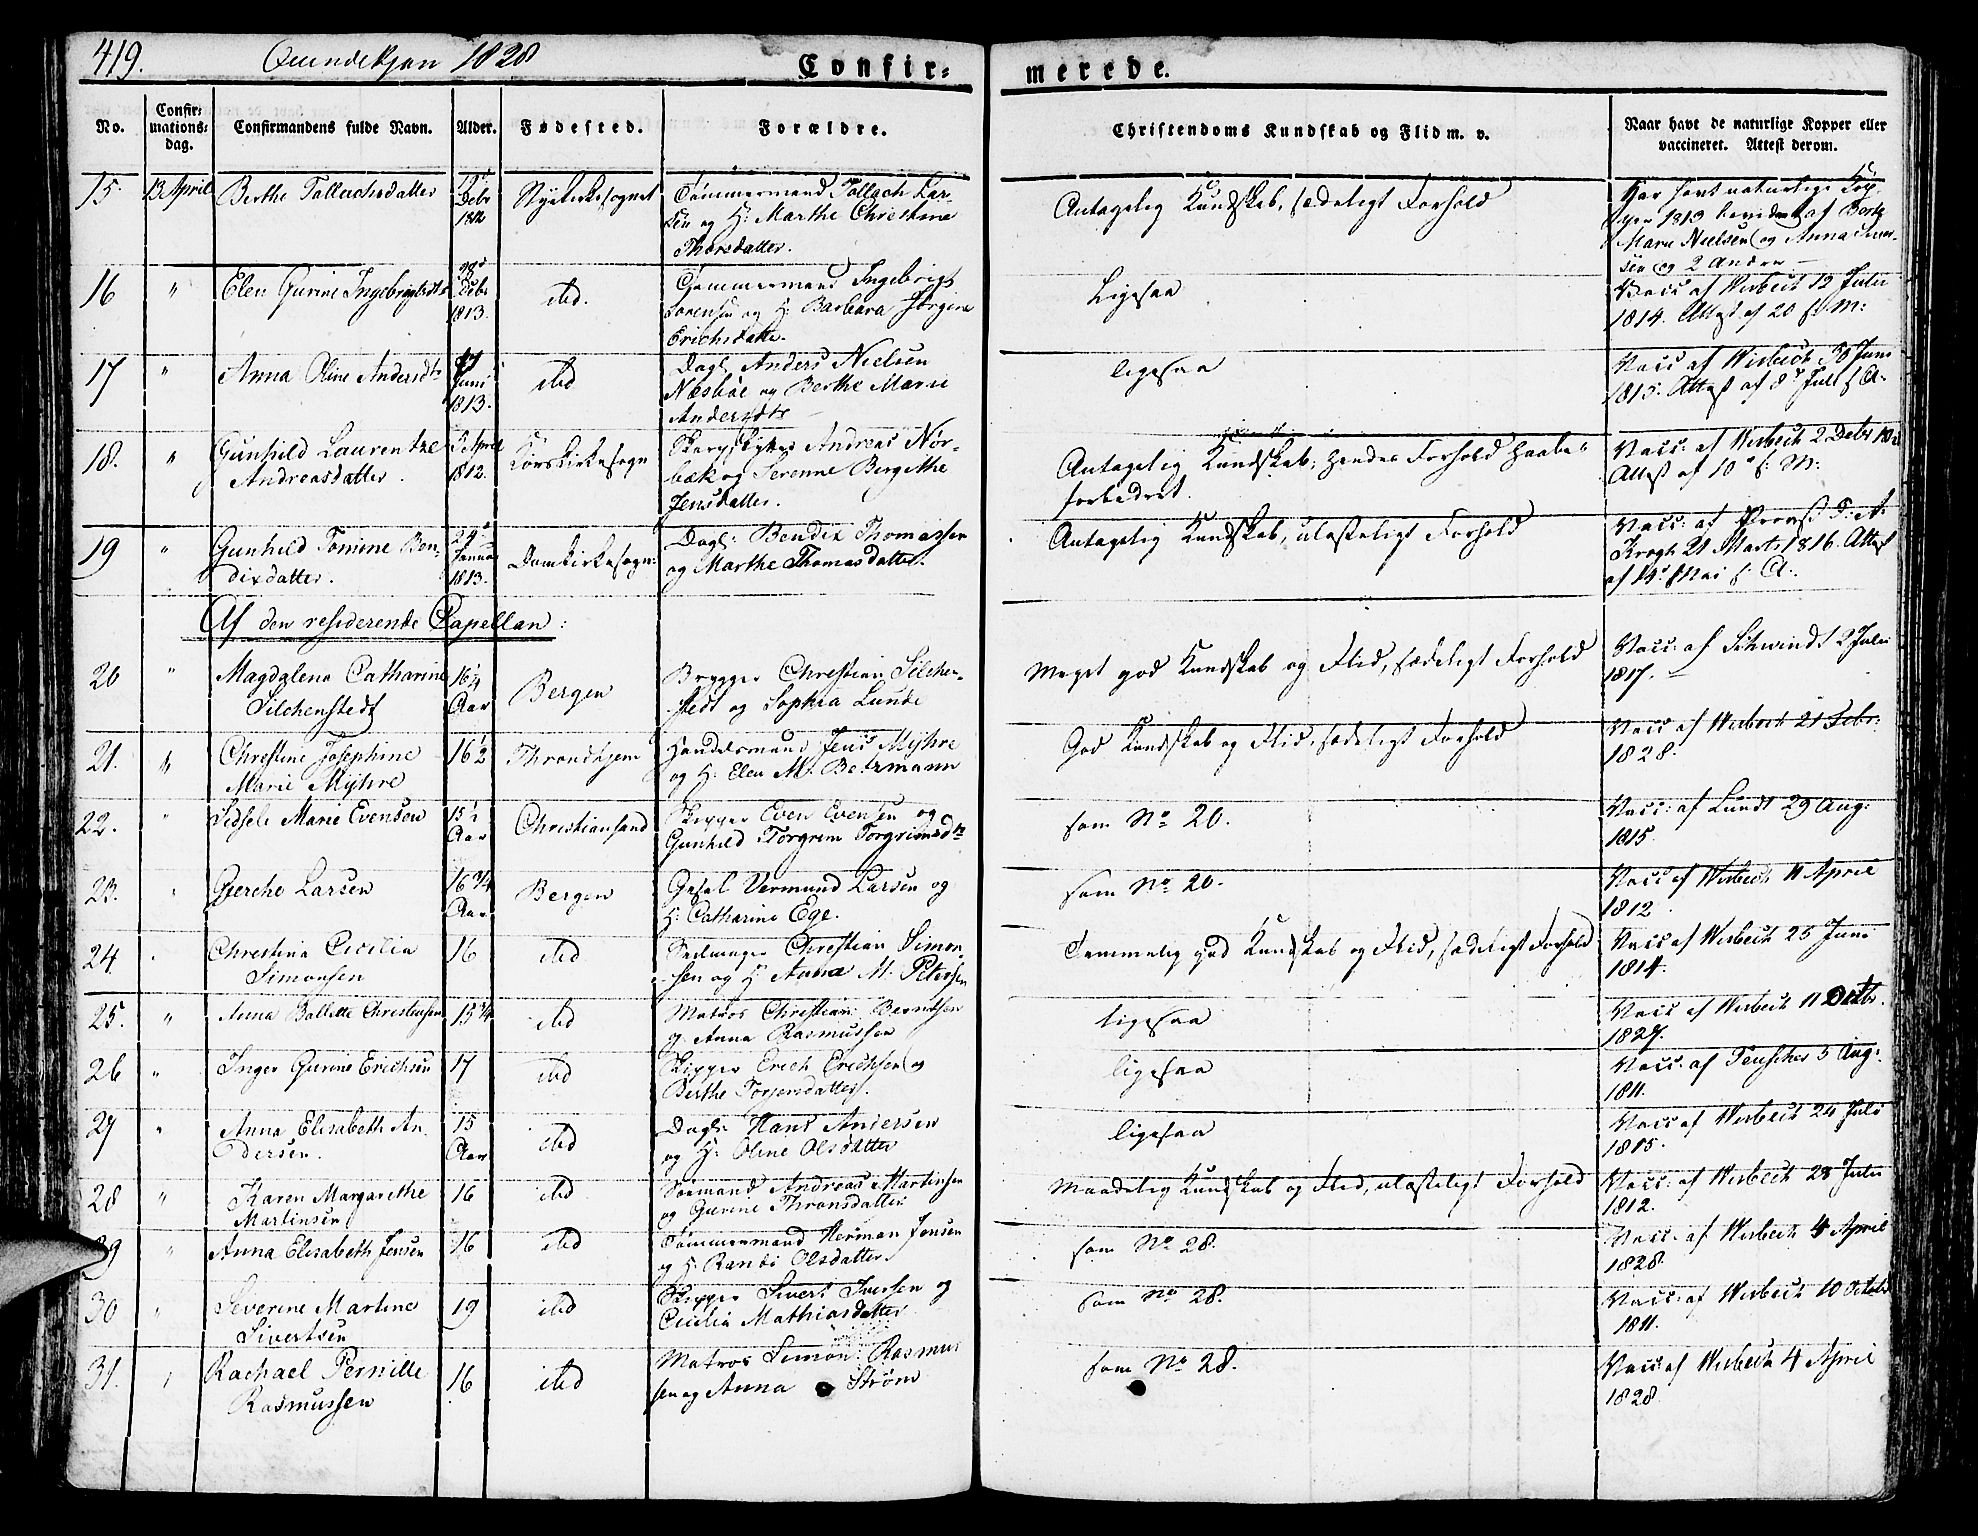 419. Qvindekjøn 1828 Confir=
merede.
No. Confir=mations=dag. Confirmandens fulde Navn. Alder. Fødested. Forældre. Christendoms Kundskab og Flid m. v. Naar havt de naturlige Kopper eller vaccineret. Attest derom.
15. 13 April Berthe Tollachsdatter 1812 Nyekirkesognet Tømmermand Tollach Lar-
sen og H: Marthe Christine
Thorsdatter.
Antagelig Kundskab, sædeligt Forhold
Har havt naturlige Kop-
per 1813 bevidnet af
Marie Nielsen og Anna
sen og 2 Andre
16 " Elen Gurine Ingebrigtsdtr 28 Debr 1813. ibid. Tømmermand Ingebrigt
Sørensen og H: Barbara Jørgine
Erichsdatter.
Ligesaa
Vacc: af Wisbech 12 Julii
1814. Attest af 20 s: M:
17 " Anna Oline Andersdtr Juni 1813. ibid Dagl. Anders Nielsen
Næsbøe og Berthe Marie
Andersdtr
ligesaa
Vacc af Wisbech 30 Juni
1815. Attest af 8de Juli s: A:
18. " Gunhild Laurentze
Andreasdatter.
5 April 1812. Korskirkesogn Andreas Nør-
bæk og Serenne Bergithe
Jensdatter.
Antagelig Kundskab; hendes Forhold haabes
forbedret.
Vacc: af Wisbech 2 Debr
Attest af 10de s: M:
19 " Gunhild Tomine Ben-
dixdatter.
29de Januar 1813. Domkirkesogn: Dagl: Bendix Thomassen
og Marthe Thomasdatter.
Antagelig Kundskab, ulasteligt Forhold
Vacc: af Provst
Krogh 21 Marts 1816. Attest
af 14de Mai s: A:
Af den residerende Capellan:
20 " Magdalena Catharine
Silchenstedt
16 1/4 Aar Bergen Brygger Christian Silchen-
stedt og Sophia Lunde
Meget god Kundskab og Flid, sædeligt Forhold
Vacc: af Schwindt 2 Julii
1817.
21. " Christine Josephine
Marie Myhre
16 1/2 Throndhjem Handelsmand Jens Myhre
og H: Elen M. Betzmann
God Kundskab og Flid, sædeligt Forhold
Vacc af Wisbech 21 Febr:
1828.
22. " Sidsele Marie Evensen 15 1/2 Aar Christiansand Skipper Even Evensen og
Gunhild Torgrim Torgrimsdtr
som No 20.
Vacc: af Lundt 29 Aug:
1815.
23. " Gjerche Larsen 16 3/4 Aar Bergen Vermund Larsen og
H: Catharine Ege.
som No 20.
Vacc af Wisbech 11 April
1812
24 " Christina Cicilia
Simonsen
16 ibid Seilmager Christian Simon-
sen og H: Anna M. Petersen
Temmelig god Kundskab og Flid, sædeligt Forhold
Vacc af Wisbech 25 Juni
1814.
25. " Anna Bollette Christensen 15 1/4 ibid Matros Christian Berntsen
og Anna Rasmussen
ligesaa
Vacc af Wisbech 11 Octbr.
1827.
26 " Inger Gurine Erichsen 17 ibid Skipper Erich Erichsen og
Berthe Torjersdatter.
ligesaa
Vacc: af 5 Aug:
1811.
27 " Anna Elisabeth An-
dersen.
15 Aar ibid Dagl: Hans Andersen
og H: Oline Olsdatter
ligesaa
Vacc af Wisbech 24 Juli
1815.
28 " Karen Margarethe
Martinsen
16 ibid Sømand Andreas Martinsen
og Gurine Thronsdatter
Maadelig Kundskab og Flid, ulasteligt Forhold
Vacc: af Wisbech 28 Julii
1812.
29 " Anna Elisabeth Jensen 16 ibid Tømmermand Herman Jensen
og H: Randi Olsdatter
som No 28.
Vacc. af Wisbech 4 April
1828.
30 " Severine Martine
Sivertsen
19 ibid Skipper Sivert Iversen og
Cicilia Mathiasdatter
som No 28.
Vacc: af Wisbech 10 Octobr
1811.
31. " Rachael Pernille
Rasmussen
16 ibid Matros Simon Rasmus
sen og Anna Strøm
som No 28.
Vacc af Wisbech 4 April
1828